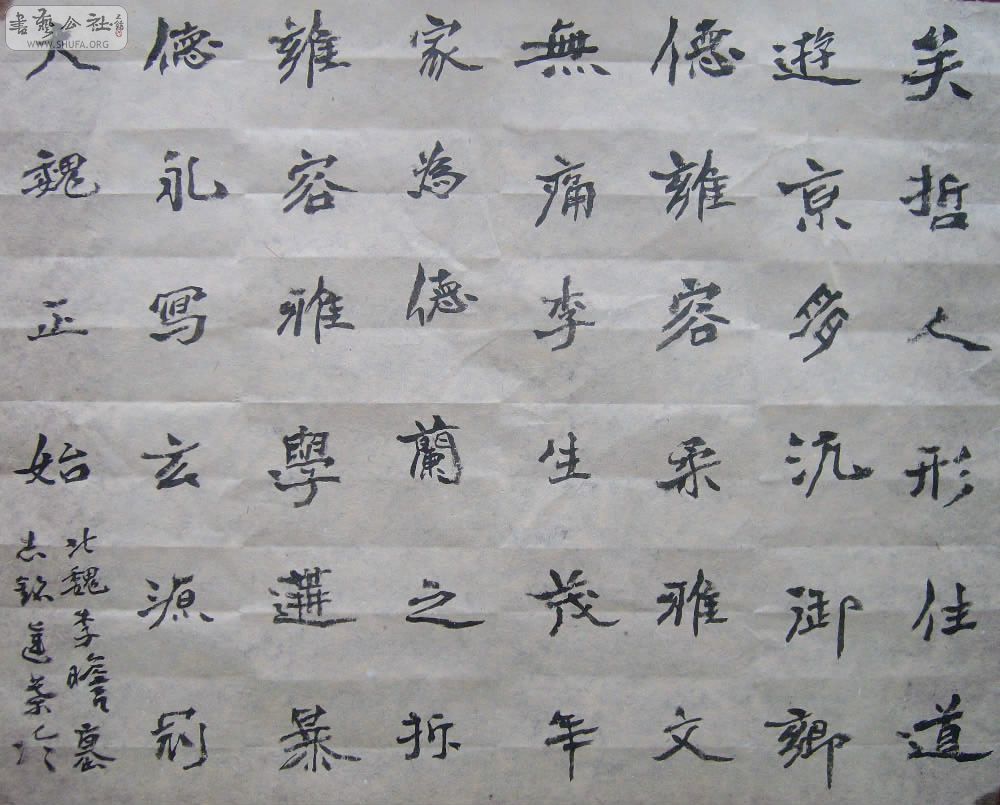 美哲人形住道
遊京多沉御鄉
德雍容柔雅文
無痛李生茂年
家為德蘭之折
雍容雅學遘暴
德永寫玄源刻
人魏正始
北魏李瞻墓
志銘
書藝公社
WWW.SHUFA.ORG